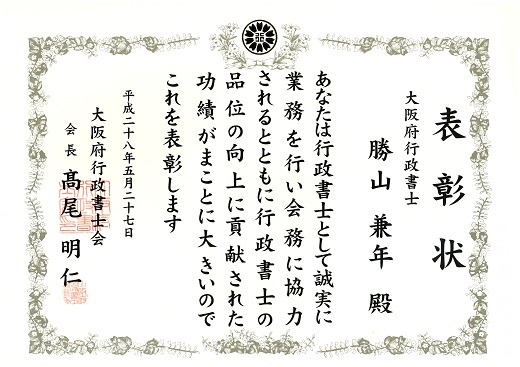 表彰状
大阪府行政書士
勝山兼年殿
あなたは行政書士として誠実に
業務を行い会務に協力
されるとともに行政書士の
品位の向上に貢献された
功績がまことに大きいので
これを表彰します
平成二十八年五月二十七日
大阪府行政書士会
会長 髙尾明仁